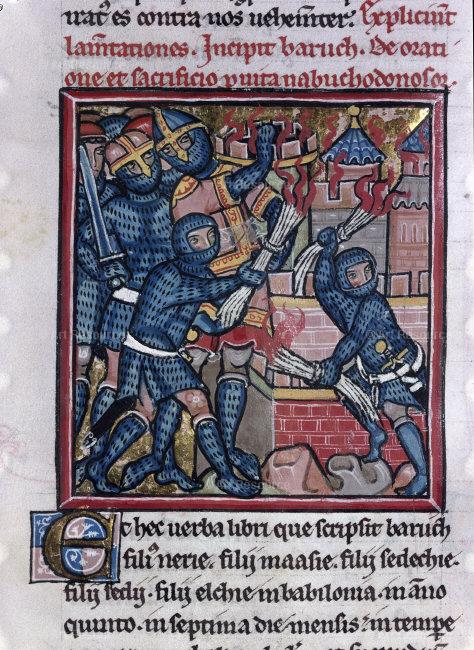 irat᷒ es contra nos vehement᷑. Expliciunt
lamtationes. Incipit baruch. De orati
one et sacrificio p vita nabuchodonosor.
Et hec verba libri que scripsit baruch
filiꝰ nerie. filij maasie. filij sedechie.
filij sedij. filij elchie in babilonia. in ãno
quinto. in septima die mensis. in tempe